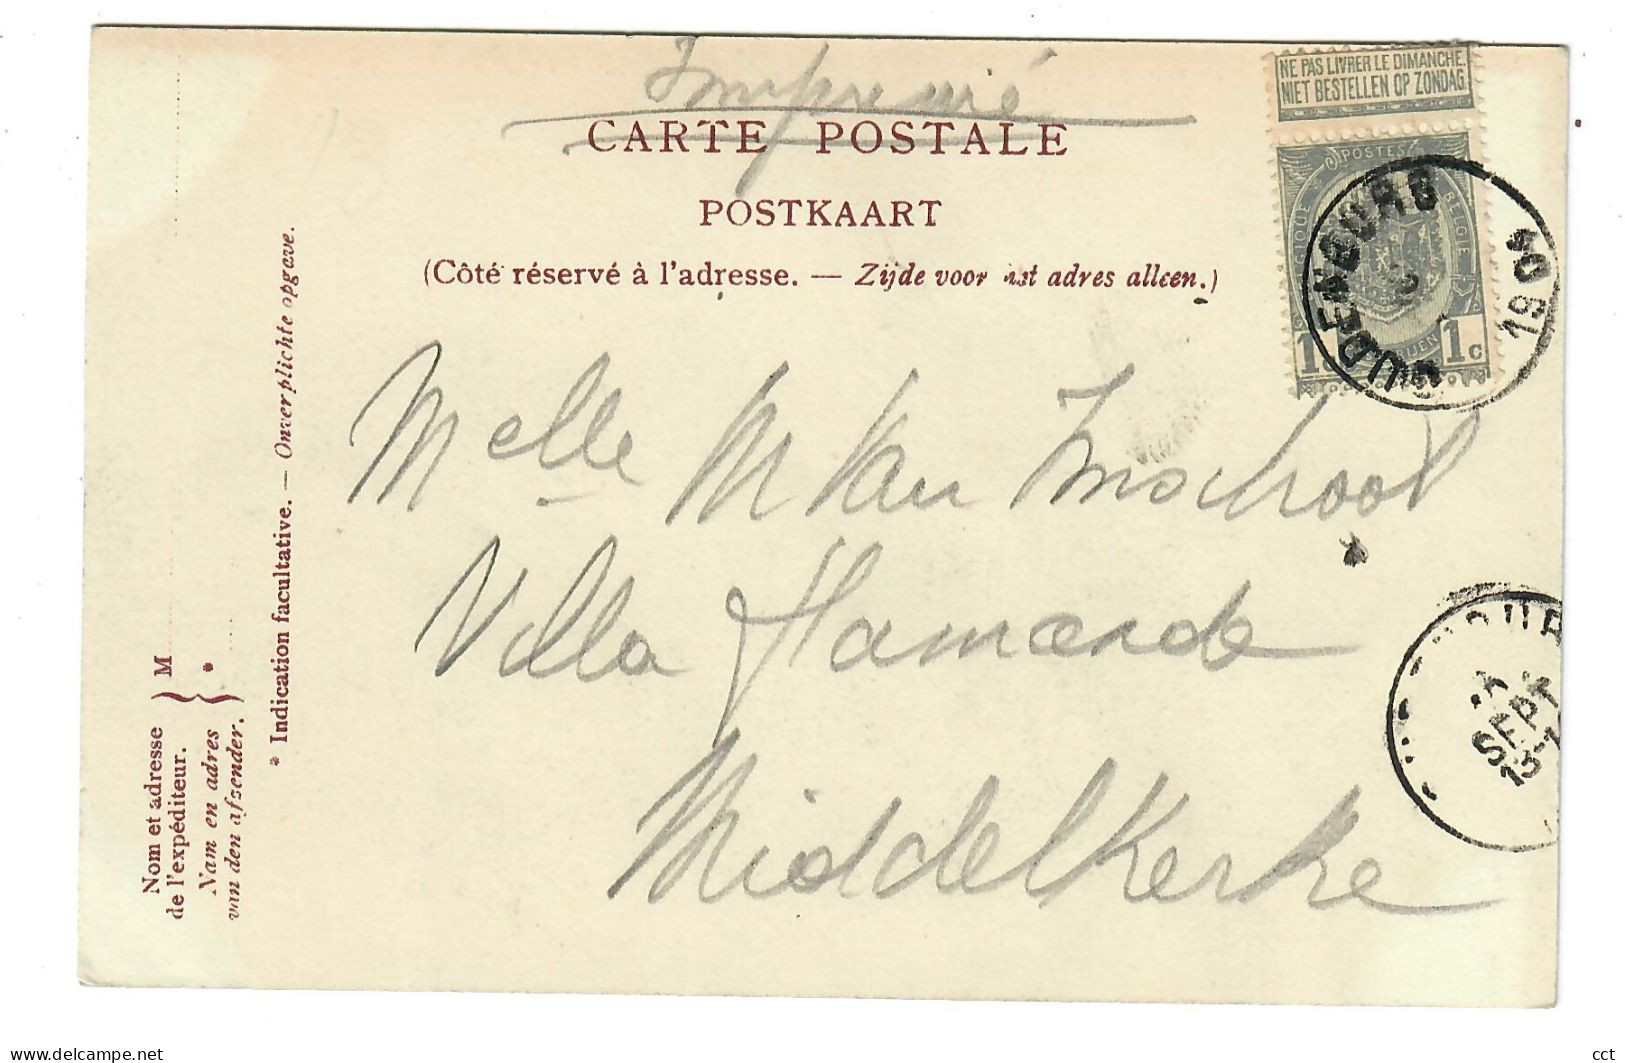 Imprimé
CARTE POSTALE
POSTKAART
(Côté réservé à l'adresse. — Zijde voor het adres alleen.)
NE PAS LIVRER LE DIMANCHE
NIET BESTELLEN OP ZONDAG
POSTES
BELGIE
1c
OUDENBOURG
1904
Melle M Van Imschoot
Villa Flamande
Middelkerke
SEPT
13-7
Nom et adresse
de l'expéditeur.
Nam en adres
van den afsender.
} M
*
* Indication facultative. — Onverplichte opgave.
delcampe.net
cct